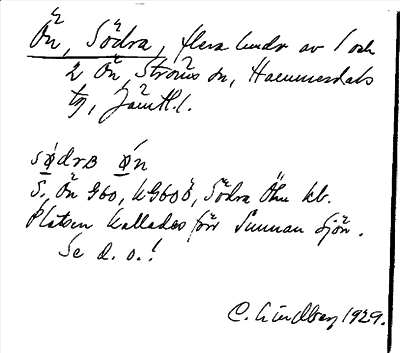 Ön, Södra, flera hmdr av 1 och
2 Ön, Ströms sn, Hammerdals
tg, Jämtl. l.
södrʙ ø̄́n
S. Ön G60, KG60ö, Södra Öhn kb.
Platsen kallades för Sunnan Sjön.
Se d. o.!
C. Lindberg 1929.